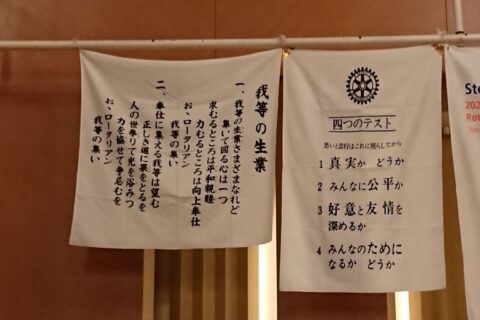 我等の生業
一、我等の生業さまざまなれど
集いて図る心は一つ
求むるところは平和親睦
力むるところは向上奉仕
お、ロータリアン
我等の集い
二、奉仕に集える我等は望む
正しき道に果をとるを
人の世挙りて光を浴みつ
力を協せて争忌むを
お、ロータリアン
我等の集い
四つのテスト
言行はこれに照らしてから
1 真実か どうか
2 みんなに公平か
3 好意と友情を
深めるか
4 みんなのために
なるか どうか
Ste
202
Rot